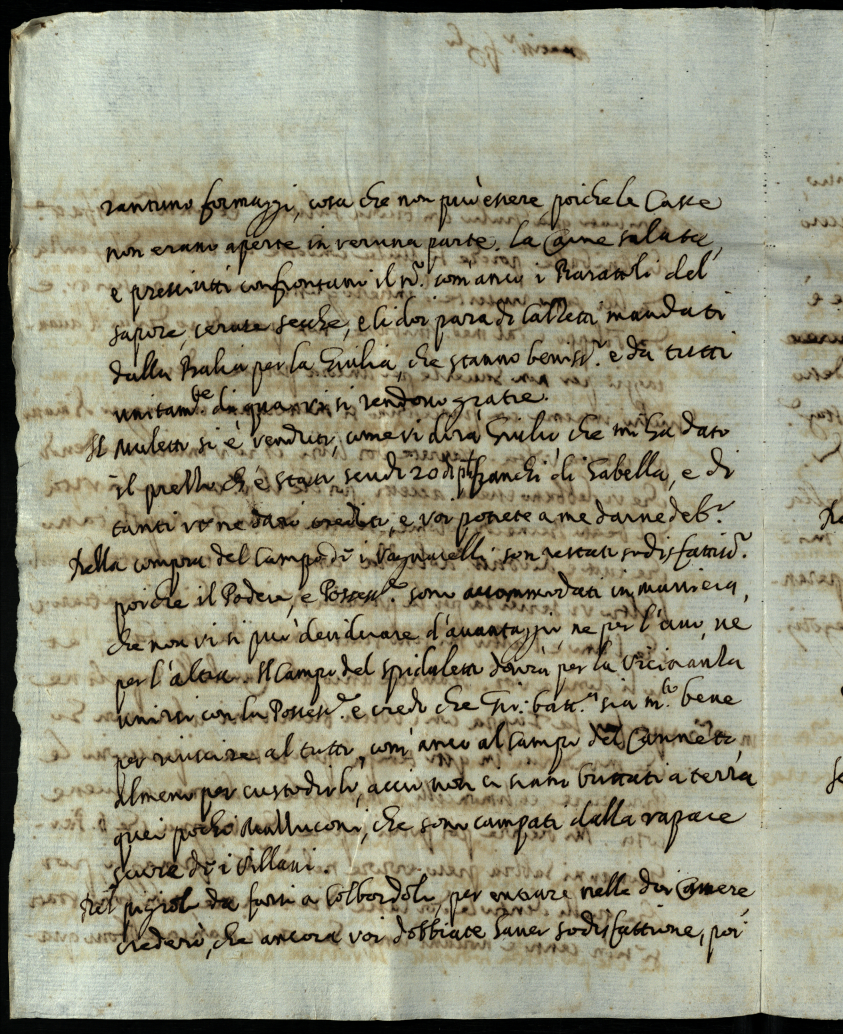 rantuno formaggi, cosa che non può essere, poiche le Casse
non erano aperte in veruna parte. la Carne salata,
e presciutti confrontano il n.º com'anco i Barattoli del
sapore, cerase secche, e li doi para di mandati
dalla Balia per la Giulia, che stanno beniss.º e da tutti
unitam.te di quanto si rendono gratie.
Il Muletto si è venduto, come vi dirà Giulio, che mi ha dato
il prezzo ch'è stato scudi 20 franchi di Gabella, e di
tanti ve ne darò credito, e voi potete a me darne deb.º
Della compra del Campo de i son restato sodisfattis.º
poiche il Podere, e Possess.e sono accommodati in maniera,
che non vi si può desiderare d'avantaggio, ne per l'uno, ne
per l'altra. Il Campo del Spidaletto dovrà per la vicinanza
unirsi con la Possess.e e credo che Gio: batt.a sia m.to bene
per riuscire al tutto, com'anco al Campo del Canneto,
almeno per custodirlo, acciò non ci siano buttati a terra
quei pochi, che sono campati dalla rapace
de i Villani.
Del da farsi a Colbordolo, per entrare nelle doi Camere
crederò, che ancora voi dobbiate haver sodisfattione, poi